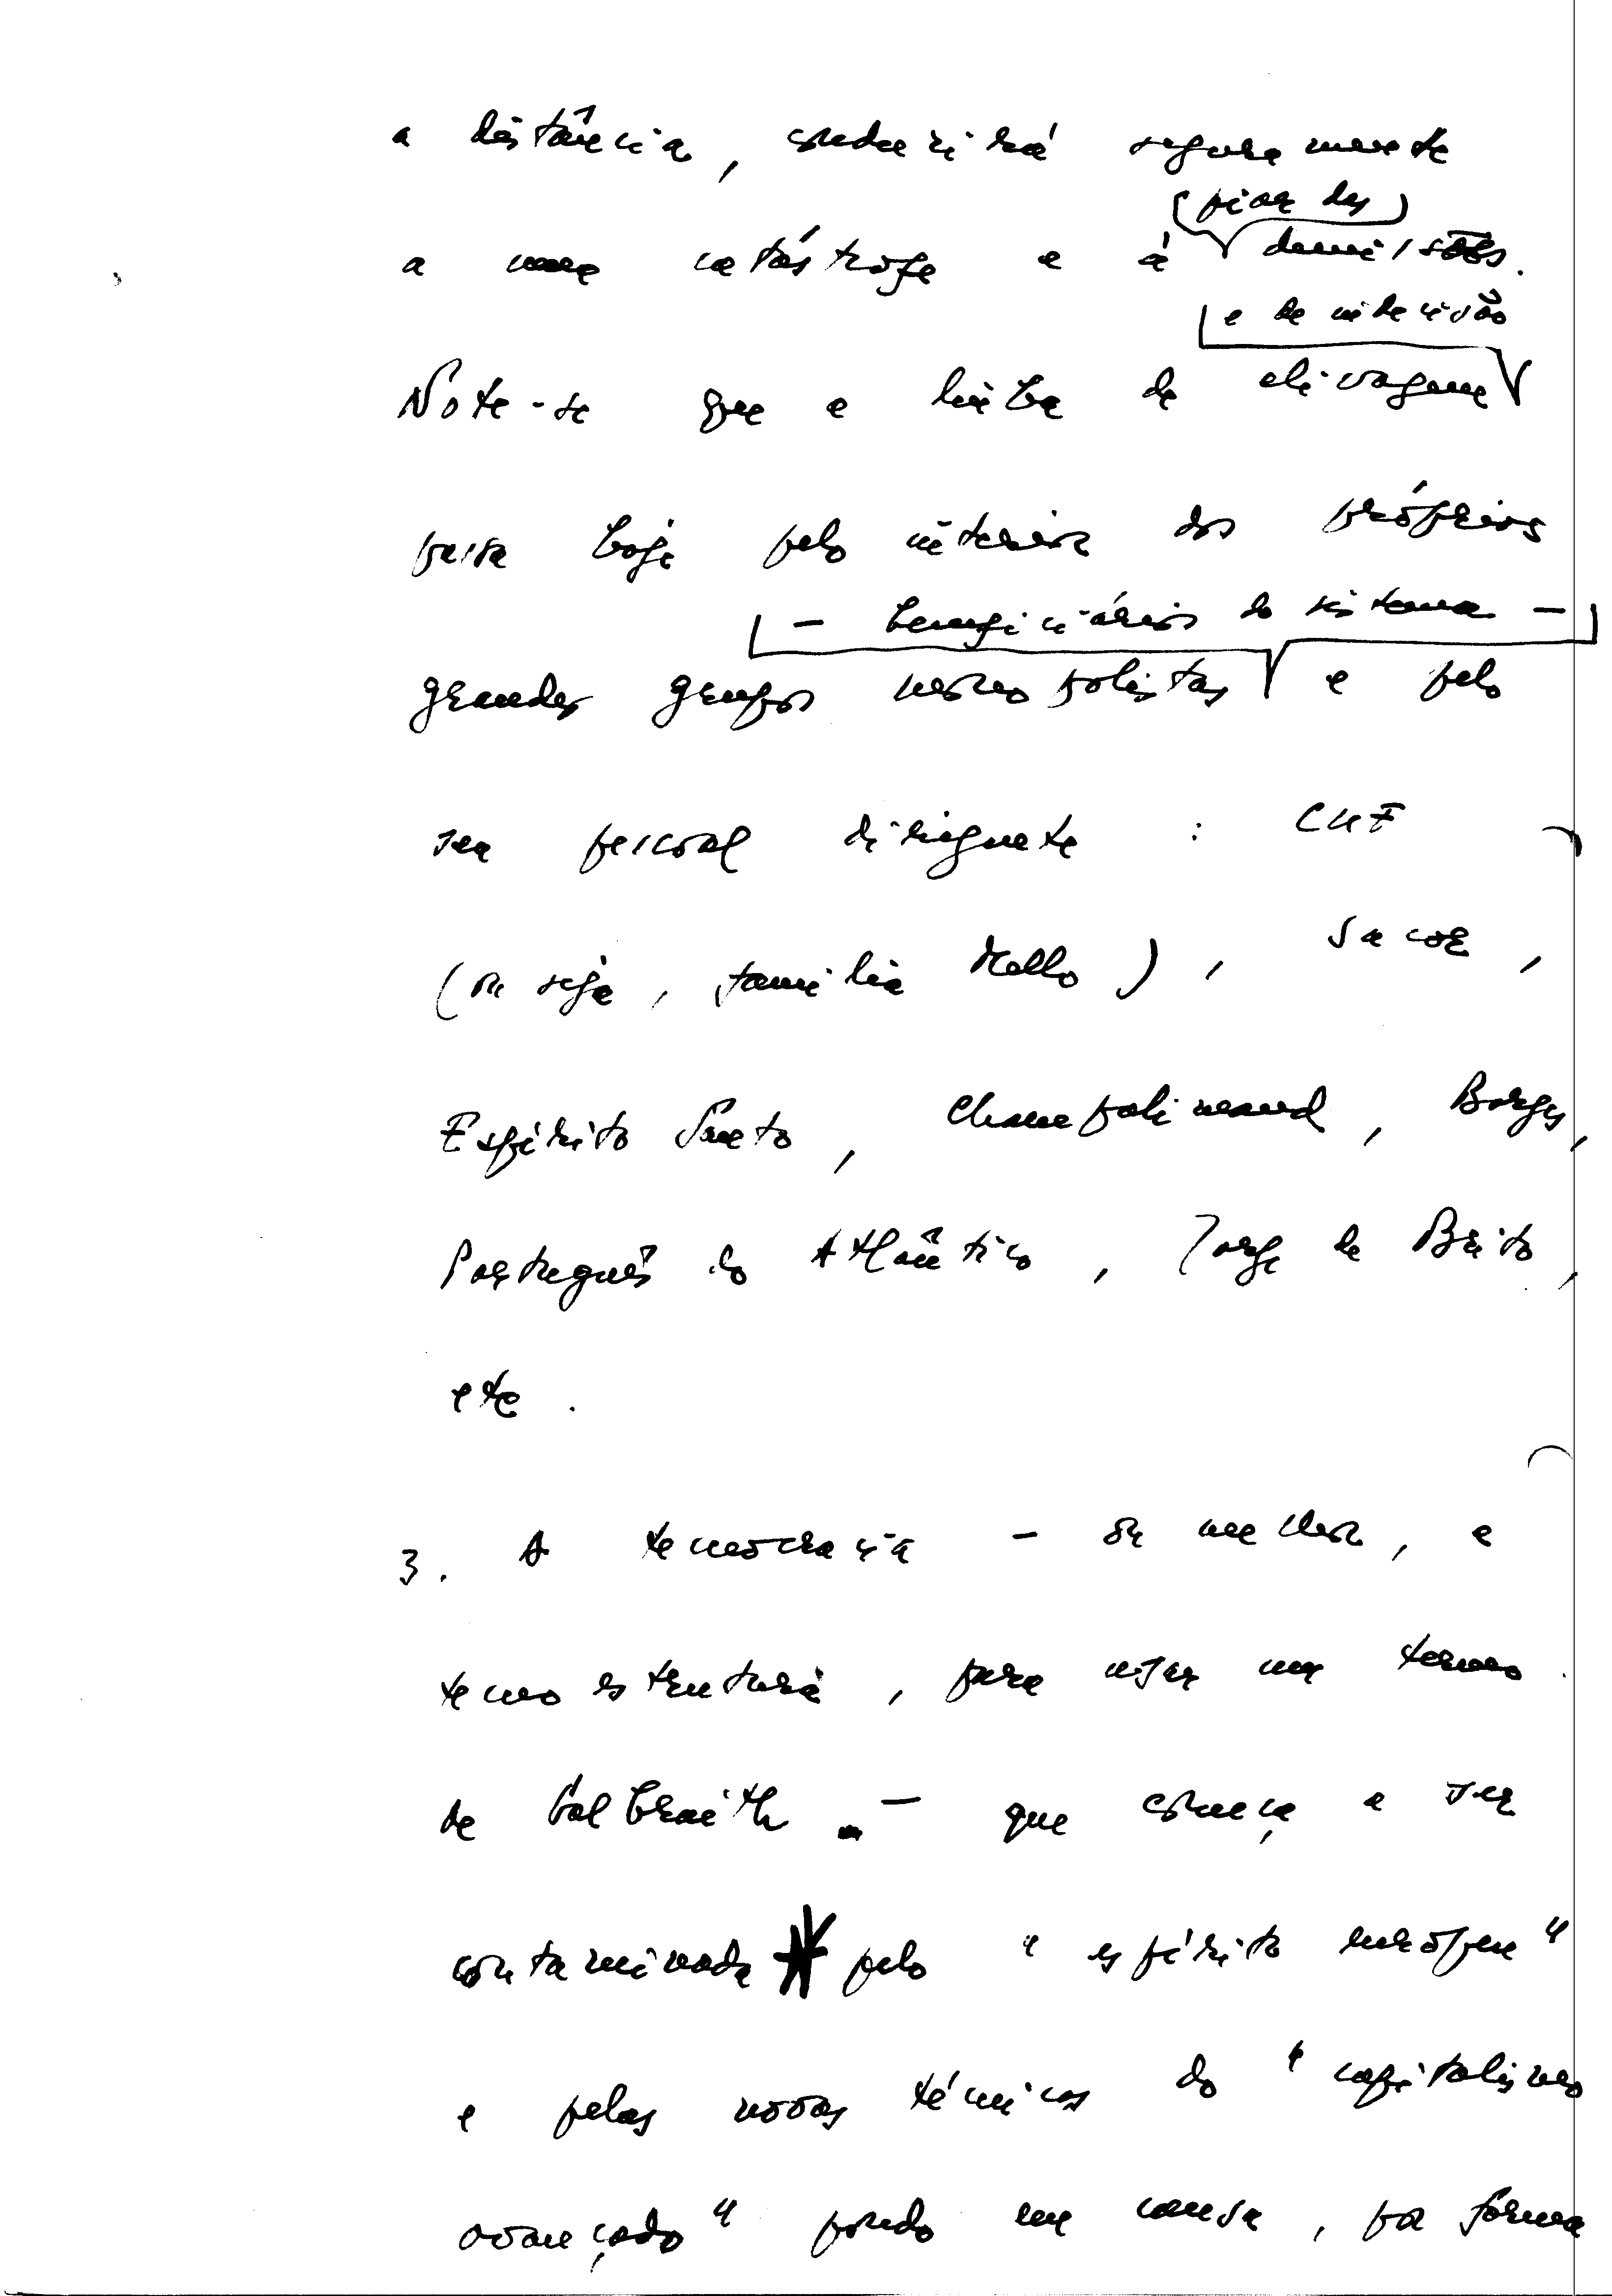 a distância, conduzirá seguramente
(pior das)
a uma catástrofe e à demissões.
e de indecisão
Note-se que a linha de clivagem
passa hoje pelo interior dos próprios
— beneficiários do sistema —
grandes grupos monopolistas e pelo
seu pessoal dirigente : CUF
(ou seja, família Mello), Sacor,
Espírito Santo, Champalimaud, Borges,
Português do Atlântico, Jorge de Brito,
etc.
3. A tecnocracia — ou melhor, a
tecnoestrutura, para usar um termo
de Galbraith — que começa a ser
contaminada pelo "espírito europeu"
e pelas novas técnicas do "capitalismo
avançado" pondo em causa, por forma